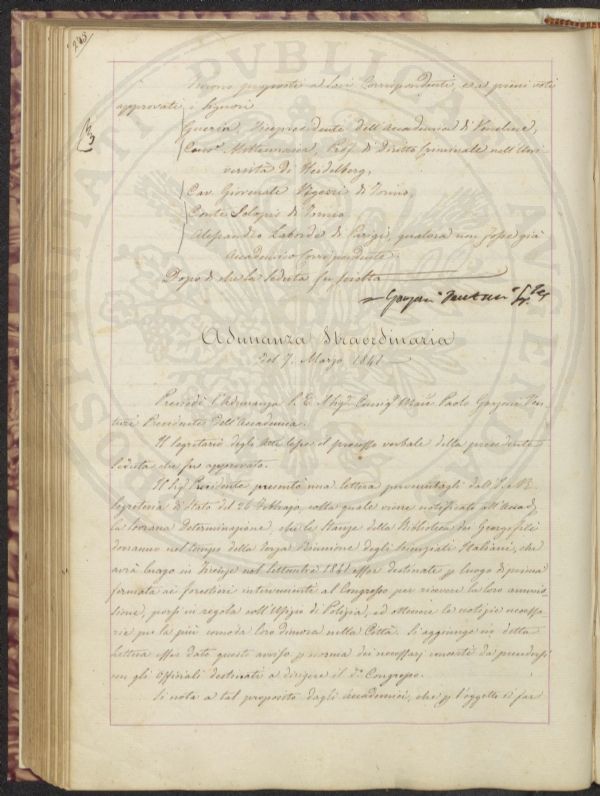 248
Furono proposti a Soci Corrispondenti, ed a pieni voti
approvati, i Signori
Guerin, Vicepresidente dell'Accademia di Vaucluse,
Cons.e Mittermaier, Prof. di Diritto Criminale nell'Uni
versità di Heidelberg,
Cav. Giovenale Vegezzi di Torino,
Conte Sclopis di Torino
Alessandro Laborde di Parigi, qualora non fosse già
Accademico Corrispondente.
Dopo di che la Seduta fu sciolta
Adunanza Straordinaria
del 7. Marzo 1841
Presiedè l'Adunanza S. E. March. Paolo Garzoni Ven-
turi Presidente dell'Accademia.
Il Segretario degli Atti lesse il processo verbale della precedente
Seduta che fu approvato.
Il Sig. Presidente presentò una lettera pervenutagli dall'I. e R.
Segreteria di Stato del 26 Febbrajo, colla quale viene notificato all'Accad.
la Sovrana determinazione, che le Stanze della Biblioteca dei Georgofili
dovranno nel tempo della terza Riunione degli Scienziati Italiani, che
avrà luogo in Firenze nel Settembre 1841 esser destinate p luogo di prima
fermata ai forestieri intervenienti al Congresso, per ricevere la loro ammis-
sione, porsi in regola coll'Uffizio di Polizia, ed ottenere le notizie necessa-
rie per la più comoda loro dimora nella Città. Si aggiunge in detta
lettera esser dato questo avviso p norma dei necessarj concerti da prendersi
con gli Offiziali destinati a dirigere il d.o Congresso.
Si notò a tal proposito dagli Accademici, che p l'oggetto di far
PROSPERITATI PUBLICAE AUGENDAE